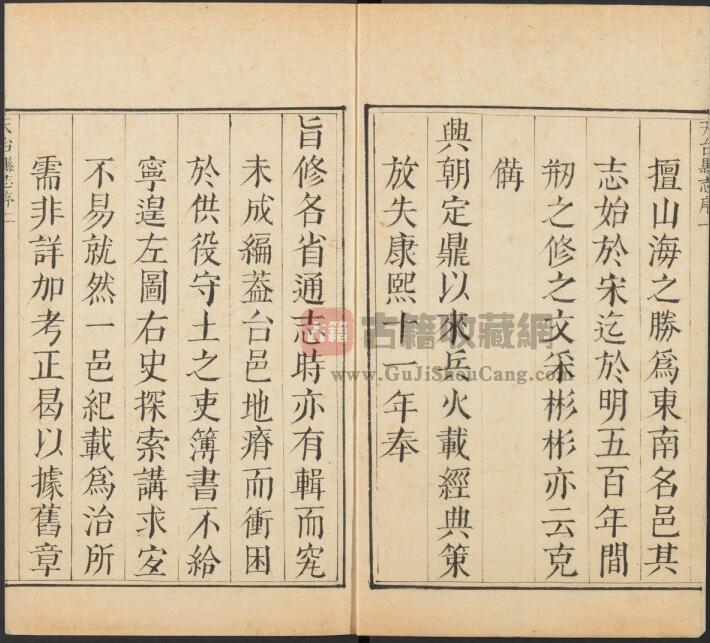 天台縣志序一
擅山海之勝爲東南名邑其
志始於宋迄於明五百年間
刱之修之文采彬彬亦云克
備
興朝定鼎以來兵火載經典策
放失康熙十一年奉
旨修各省通志時亦有輯而究
未成編葢台邑地瘠而衝困
於供役守土之吏簿書不給
寧遑左圖右史探索講求寔
不易就然一邑紀載爲治所
需非詳加考正曷以據舊章
天台縣志序二
古籍
古籍收藏網
www.GuJiShouCang.com